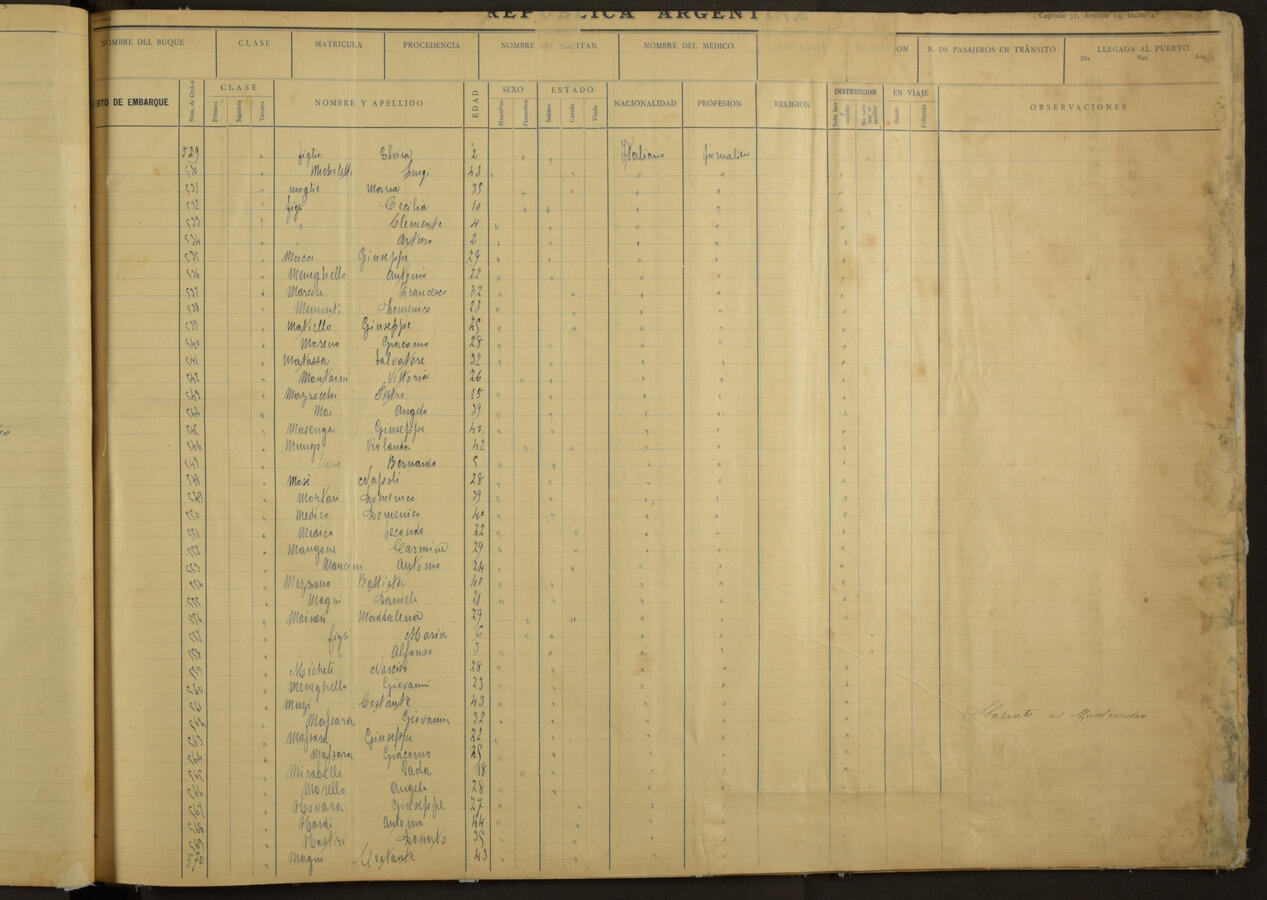 REPUBLICA ARGENTINA
Capítulo 31, Artículo 24, Inciso 4
NOMBRE DEL BUQUE CLASE MATRICULA PROCEDENCIA NOMBRE DEL CAPITAN NOMBRE DEL MÉDICO ON N. DE PASAJEROS EN TRÁNSITO LLEGADA AL PUERTO
Dia Mes Año
RTO DE EMBARQUE Núm. de Orden CLASE NOMBRE Y APELLIDO EDAD SEXO ESTADO NACIONALIDAD PROFESION RELIGION INSTRUCCION EN VIAJE OBSERVACIONES
Primera Segunda Tercera Masculino Femenino Soltero Casado Viudo Sabe leer y escribir No sabe leer ni escribir Nacido Fallecido
529 " figlia Elvira 2 " " Italiano Giornaliero
530 " Micheletti Luigi 43 " " "
531 " moglie Maria 35 " " " "
532 " figli Cecilia 10 " " " "
533 " " Clemente 4 " " " "
534 " " Arturo 2 " " " "
535 " Mucci Giuseppe 29 " " " "
536 " Meneghello Antonio 22 " " " "
537 " Marcon Francesco 32 " " " "
538 " Domenico 23 " " " "
539 " Matiello Giuseppe 25 " " " "
540 " Moreno Giacomo 28 " " " "
541 " Matassa Salvatore 32 " " " "
542 " Vittoria 26 " " " "
543 " Mazzocchi Pietro 15 " " " "
544 " Mai Angelo 39 " " " "
545 " Musenga Giuseppe 40 " " " "
546 " Violanta 42 " " " "
547 " figlio Bernardo 5 " " " "
548 " Mosè Napoli 28 " " " "
549 " Mortari Domenico 39 " " " "
550 " Medico Domenico 40 " " " "
551 " Medico Secondo 22 " " " "
552 " Mangone Carmine 29 " " " "
553 " Mancini Antonio 24 " " " "
554 " Mezzano Battista 40 " " " "
555 " Magni Daniele 21 " " " "
556 " Maineri Maddalena 29 " " " "
557 " figli Maria 6 " " " "
558 " " Alfonso 3 " " " "
559 " Micheli Narciso 28 " " " "
560 " Meneghello Giovanni 23 " " " "
561 " Muzi Costante 43 " " " "
562 " Massara Giovanni 32 " " " " Sbarcato a Montevideo
563 " Massara Giuseppe 22 " " " "
564 " Massara Giacomo 25 " " " "
565 " Mirabelli Paola 18 " " " "
566 " Morello Angelo 28 " " " "
567 " Novara Giuseppe 27 " " " "
568 " Nardi Antonio 44 " " " "
569 " Donato 35 " " " "
570 " Magni Costante 43 " " " "